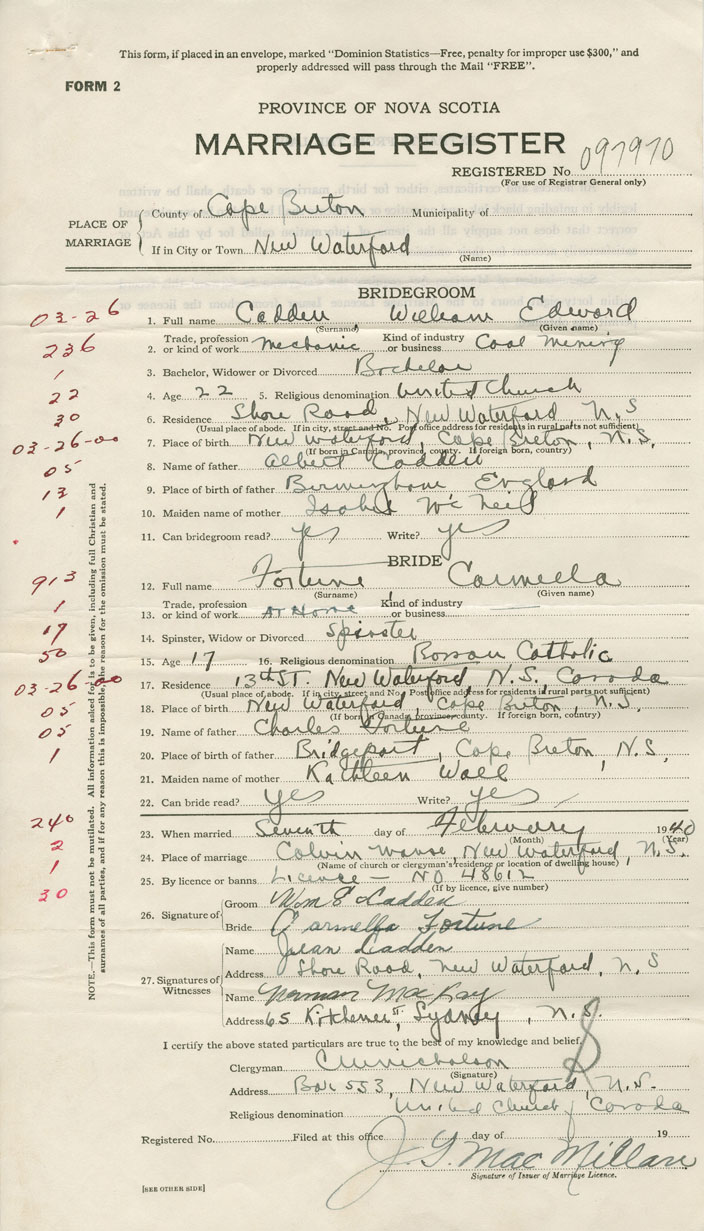 This form, if placed in an envelope, marked "Dominion Statistics—Free, penalty for improper use $300," and
properly addressed will pass through the Mail "FREE".
FORM 2
PROVINCE OF NOVA SCOTIA
MARRIAGE REGISTER
REGISTERED No. 097970
(For use of Registrar General only)
PLACE OF MARRIAGE
County of Cape Breton Municipality of
If in City or Town New Waterford
(Name)
BRIDEGROOM
03-26
1. Full name Cadden William Edward
(Surname) (Given name)
236
2. Trade, profession or kind of work Mechanic Kind of industry or business Coal Mining
1
3. Bachelor, Widower or Divorced Bachelor
22
4. Age 22 5. Religious denomination United Church
30
6. Residence Shore Road, New Waterford N.S
(Usual place of abode. If in city, street and No. Post office address for residents in rural parts not sufficient)
03-26-00
7. Place of birth New Waterford, Cape Breton, N.S.
(If born in Canada, province, county. If foreign born, country)
05
8. Name of father Albert Cadden
13
9. Place of birth of father Birmingham England
1
10. Maiden name of mother Isabel McNeil
11. Can bridegroom read? yes Write? yes
BRIDE
913
12. Full name Fortune Carmella
(Surname) (Given name)
1
13. Trade, profession or kind of work At Home Kind of industry or business
17
14. Spinster, Widow or Divorced Spinster
50
15. Age 17 16. Religious denomination Roman Catholic
03-26-00
17. Residence 13th ST. New Waterford N.S. Canada
(Usual place of abode. If in city, street and No. Post office address for residents in rural parts not sufficient)
05
18. Place of birth New Waterford, Cape Breton, N.S.
(If born in Canada, province, county. If foreign born, country)
05
19. Name of father Charles Fortune
1
20. Place of birth of father Bridgeport, Cape Breton, N.S.
21. Maiden name of mother Kathleen Wall
22. Can bride read? yes Write? yes
240
23. When married Seventh day of February 1940
(Month) (Year)
2
24. Place of marriage Calvin Manse, New Waterford, N.S.
(Name of church or clergyman's residence or location of dwelling house)
1
25. By licence or banns License - No 48612
(If by licence, give number)
30
26. Signature of
Groom Wm E Cadden
Bride Carmella Fortune
27. Signatures of Witnesses
Name Jean Cadden
Address Shore Road, New Waterford, N.S
Name Norman MacKay
Address 65 Kitchener St, Sydney, N.S.
I certify the above stated particulars are true to the best of my knowledge and belief.
Clergyman C W Nicholson
(Signature)
Address Box 553, New Waterford, N.S.
Religious denomination United Church of Canada
Registered No. Filed at this office day of 19
J. G. MacMillan
Signature of Issuer of Marriage Licence.
[SEE OTHER SIDE]
NOTE.—This form must not be mutilated. All information asked for is to be given, including full Christian and
surnames of all parties, and if for any reason this is impossible, the reason for the omission must be stated.